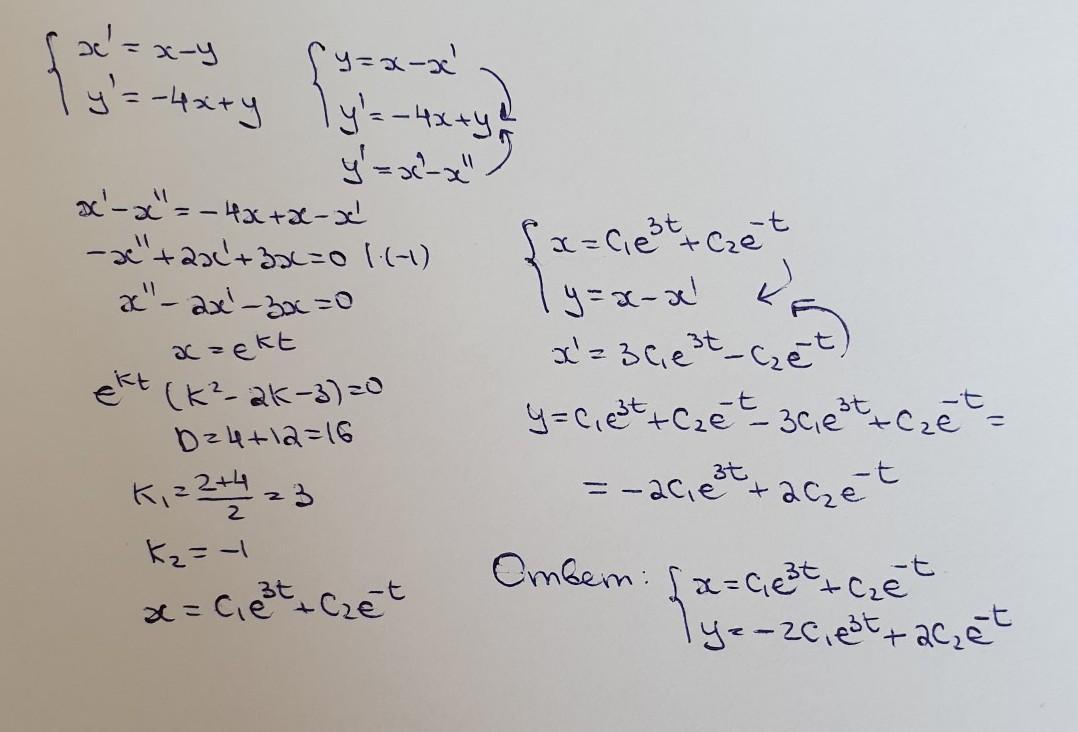 { x' = x-y
y' = -4x+y
{ y = x-x'
y' = -4x+y
y' = x'-x''
x'-x'' = -4x+x-x'
-x''+2x'+3x=0 |·(-1)
x''-2x'-3x=0
x = e^{kt}
e^{kt} (k²-2k-3)=0
D=4+12=16
K₁ = \frac{2+4}{2} = 3
K₂ = -1
x = C₁e^{3t}+C₂e^{-t}
{ x = C₁e^{3t}+C₂e^{-t}
y = x-x'
x' = 3C₁e^{3t}-C₂e^{-t}
y=C₁e^{3t}+C₂e^{-t}-3C₁e^{3t}+C₂e^{-t} =
= -2C₁e^{3t}+2C₂e^{-t}
Ответ: { x=C₁e^{3t}+C₂e^{-t}
y=-2C₁e^{3t}+2C₂e^{-t}